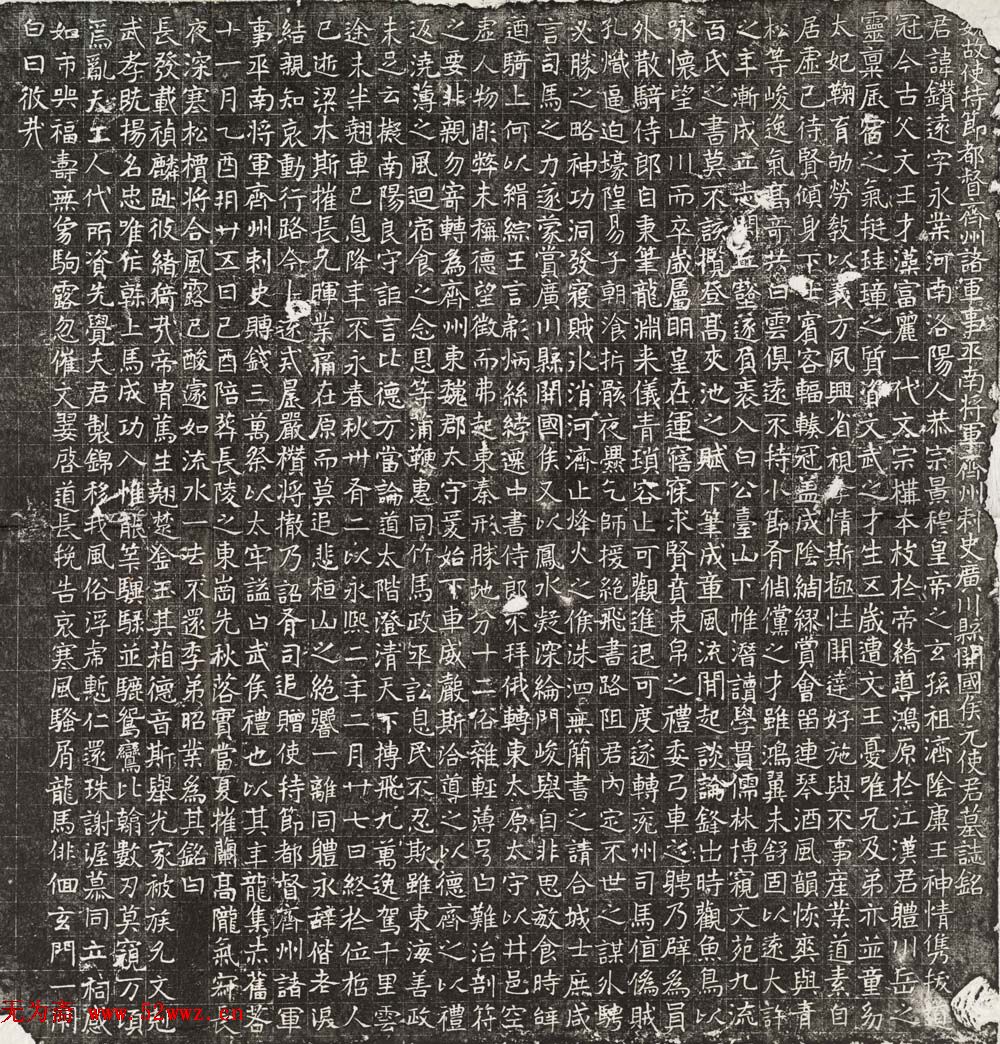 魏故使持節都督齊州諸軍事平南將軍齊州刺史廣川縣開國侯元使君墓誌銘
君諱鑽遠字永業河南洛陽人恭宗景穆皇帝之玄孫祖濟陰康王神情雋拔道
冠今古父文王才藻富麗一代文宗構本枝於帝緒導鴻原於江漢君體川岳之
靈稟辰宿之氣挺珪璋之質資文武之才生五歲遭文王憂唯兄及弟亦並童幼
太妃鞠育劬勞教以義方夙興省視孝情斯極性開達好施與不事產業道素自
居虛己待賢傾身下士賓客輻輳冠蓋成陰綢繆賞會留連琴酒風韻恢爽與青
松等峻逸氣高奇共白雲俱遠不持小節有倜儻之才雖鴻翼未舒固以遠大許
之年漸成立志閑益谿遂負袠入白公臺山下帷潛讀學貫儒林博窺文苑九流
百氏之書莫不該攬登高夾池之賦下筆成章風流閒起談論鋒出時觀魚鳥以
咏懷望山川而卒歲屬明皇在運寤寐求賢賁束帛之禮委弓車之聘乃辟為員
外散騎侍郎自秉筆龍淵來儀青瑣容止可觀進退可度遂轉兗州司馬值偽賊
孔熾逼迫壕隍易子朝飡折骸夜爨乞師援絕飛書路阻君內定不世之謀外騁
必勝之略神功洞發寇賊冰消河濟止烽火之候洙泗無簡書之請合城士庶咸
言司馬之力遂蒙賞廣川縣開國侯又以鳳水凝深綸門峻舉自非思放食時辭
遒騎上何以緝綜王言彪炳絲綍遷中書侍郎不拜俄轉東太原太守以井邑空
虛人物彫弊未稱德望徵而弗起東秦形勝地分十二俗雜輕薄号曰難治剖符
之要非親勿寄轉為齊州東魏郡太守爰始下車威嚴斯洽導之以德齊之以禮
返澆薄之風迴宿食之念恩等蒲鞭惠同竹馬政平訟息民不忍斯雖東海善政
未足云擬南陽良守詎言比德方當論道太階澄清天下摶飛九萬逸駕千里雲
途未半翹車已息降年不永春秋卅有二以永熙二年二月廿七日終於位哲人
已逝梁木斯摧長兄暉業痛在原而莫追悲桓山之絕響一離同體永辭偕老涙
結親知哀動行路今上遂貳晨嚴欑將撤乃詔有司追贈使持節都督齊州諸軍
事平南將軍齊州刺史賻錢三萬祭以太牢謚曰武侯禮也以其年龍集赤奮若
十一月乙酉朔廿五日己酉陪葬長陵之東崗先秋落實當夏摧蘭高隴氣寂
夜深寒松檟將合風露已酸遽如流水一去不還季弟昭業為其銘曰
長發載禎麟趾攸緒猗哉帝冑篤生翹楚金玉其相德音斯舉光家被族允文允
武孝旣揚名忠唯作幹上馬成功入惟龍筞驥騄並驪鴛鸞比翰數刃莫窺万頃
焉亂天生人代所資先覺夫君製錦移我風俗浮虎慙仁還珠謝渥慕同立祠感
如市哭福壽無勞駒露忽催文翣啓道長挽告哀寒風騷屑龍馬俳佪玄門一閇
白日攸哉
无为斋 www.52wwz.cn